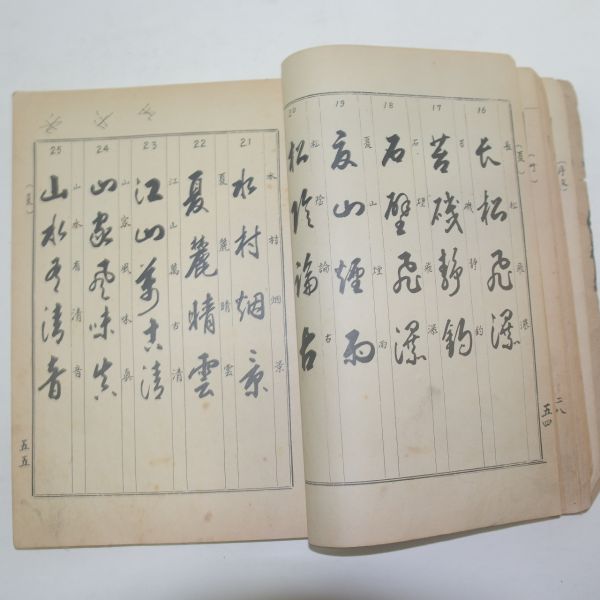 16
長松飛瀑
長松飛瀑
17
苔磯靜釣
苔磯靜釣
18
石壁飛瀑
石壁飛瀑
19
夏山煙雨
夏山煙雨
20
松陰論古
松陰論古
(夏)
五四
二八
21
水村烟景
水村烟景
22
夏麓晴雲
夏麓晴雲
23
江山萬古清
江山萬古清
24
山家風味真
山家風味真
25
山水有清音
山水有清音
(夏)
五五